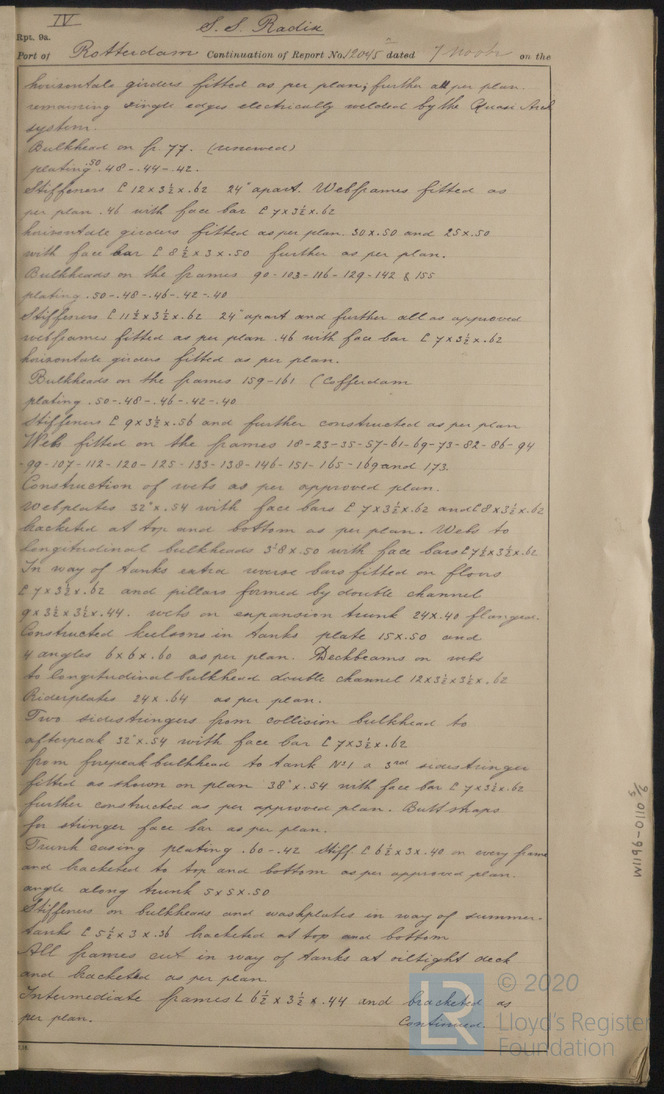 IV
S.S. Radix
Rpt. 9a.
Port of Rotterdam Continuation of Report No. 12045 dated 7 Novbr on the
horisontale girders fitted as per plan, further all per plan.
remaining single edges electrically welded by the Quasi Arck
system.
Bulkhead on fr. 77. (renewed)
plating .50 .48-.44-.42.
Stiffeners [ 12 x 3½ x .62 24" apart. Webframes fitted as
per plan .46 with face bar [ 7 x 3½ x .62
horisontale girders fitted as per plan. 30 x .50 and 25 x .50
with face bar [ 8½ x 3 x .50 further as per plan.
Bulkheads on the frames 90-103-116-129-142 & 155
plating .50-.48-.46-.42-.40
Stiffeners [ 11½ x 3½ x .62 24" apart and further all as approved
webframes fitted as per plan .46 with face bar [ 7 x 3½ x .62
horisontale girders fitted as per plan.
Bulkheads on the frames 159-161 (Cofferdam
plating .50-.48-.46-.42-.40
Stiffeners [ 9 x 3½ x .56 and further constructed as per plan
Web fitted on the frames 18-23-35-57-61-69-73-82-86-94
-99-107-112-120-125-133-138-146-151-165-169 and 173.
Construction of webs as per approved plan.
Webplates 32" x .54 with face bars [ 7 x 3½ x .62 and [ 8 x 3½ x .62
bracketed at top and bottom as per plan. Webs to
longitudinal bulkheads 3'8 x .50 with face bars [ 7½ x 3½ x .62
In way of tanks extra reverse bars fitted on floors
[ 7 x 3½ x .62 and pillars formed by double channel
9 x 3½ x 3½ x .44. webs on expansion trunk 24 x .40 flanged.
Constructed keelsons in tanks plate 15 x .50 and
4 angles 6 x 6 x .60 as per plan. Deckbeams on webs
to longitudinal bulkhead double channel 12 x 3½ x 3½ x .62
Riderplates 24 x .64 as per plan.
Two sidestringers from collision bulkhead to
afterpeak 32" x .54 with face bar [ 7 x 3½ x .62
from forepeakbulkhead to tank No 1 a 3rd sidestringer
fitted as shown on plan 38" x .54 with face bar [ 7 x 3½ x .62
further constructed as per approved plan. Buttstraps
for stringer face bar as per plan.
Trunk casing plating .60-.42 Stiff. [ 6½ x 3 x .40 on every frame
and bracketed to top and bottom as per approved plan.
angle along trunk 5 x 5 x .50
Stiffeners on bulkheads and washplates in way of summer-
tanks [ 5½ x 3 x .36 bracketed at top and bottom
All frames cut in way of tanks at oiltight deck
and bracketed as per plan.
Intermediate frames L 6½ x 3½ x .44 and bracketed as
per plan. Continued
W196-0110 2/5
LR
© 2020
Lloyd's Register
Foundation